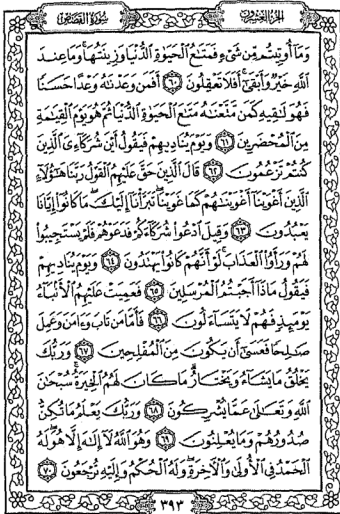 الجزء العشرون
سورة القصص
وَمَا أُوتِيتُم مِّن شَىْءٍ فَمَتَٰعُ ٱلْحَيَوٰةِ ٱلدُّنْيَا وَزِينَتُهَا ۚ وَمَا عِندَ
ٱللَّهِ خَيْرٌ وَأَبْقَىٰٓ ۚ أَفَلَا تَعْقِلُونَ ٦٠ أَفَمَن وَعَدْنَٰهُ وَعْدًا حَسَنًا
فَهُوَ لَٰقِيهِ كَمَن مَّتَّعْنَٰهُ مَتَٰعَ ٱلْحَيَوٰةِ ٱلدُّنْيَا ثُمَّ هُوَ يَوْمَ ٱلْقِيَٰمَةِ
مِنَ ٱلْمُحْضَرِينَ ٦١ وَيَوْمَ يُنَادِيهِمْ فَيَقُولُ أَيْنَ شُرَكَآءِىَ ٱلَّذِينَ
كُنتُمْ تَزْعُمُونَ ٦٢ قَالَ ٱلَّذِينَ حَقَّ عَلَيْهِمُ ٱلْقَوْلُ رَبَّنَا هَٰٓؤُلَآءِ
ٱلَّذِينَ أَغْوَيْنَآ أَغْوَيْنَٰهُمْ كَمَا غَوَيْنَا ۖ تَبَرَّأْنَآ إِلَيْكَ ۖ مَا كَانُوٓا۟ إِيَّانَا
يَعْبُدُونَ ٦٣ وَقِيلَ ٱدْعُوا۟ شُرَكَآءَكُمْ فَدَعَوْهُمْ فَلَمْ يَسْتَجِيبُوا۟
لَهُمْ وَرَأَوُا۟ ٱلْعَذَابَ ۚ لَوْ أَنَّهُمْ كَانُوا۟ يَهْتَدُونَ ٦٤ وَيَوْمَ يُنَادِيهِمْ
فَيَقُولُ مَاذَآ أَجَبْتُمُ ٱلْمُرْسَلِينَ ٦٥ فَعَمِيَتْ عَلَيْهِمُ ٱلْأَنۢبَآءُ
يَوْمَئِذٍ فَهُمْ لَا يَتَسَآءَلُونَ ٦٦ فَأَمَّا مَن تَابَ وَءَامَنَ وَعَمِلَ
صَٰلِحًا فَعَسَىٰٓ أَن يَكُونَ مِنَ ٱلْمُفْلِحِينَ ٦٧ وَرَبُّكَ
يَخْلُقُ مَا يَشَآءُ وَيَخْتَارُ ۗ مَا كَانَ لَهُمُ ٱلْخِيَرَةُ ۚ سُبْحَٰنَ
ٱللَّهِ وَتَعَٰلَىٰ عَمَّا يُشْرِكُونَ ٦٨ وَرَبُّكَ يَعْلَمُ مَا تُكِنُّ
صُدُورُهُمْ وَمَا يُعْلِنُونَ ٦٩ وَهُوَ ٱللَّهُ لَآ إِلَٰهَ إِلَّا هُوَ ۖ لَهُ
ٱلْحَمْدُ فِى ٱلْأُولَىٰ وَٱلْءَاخِرَةِ ۖ وَلَهُ ٱلْحُكْمُ وَإِلَيْهِ تُرْجَعُونَ ٧٠
٣٩٣